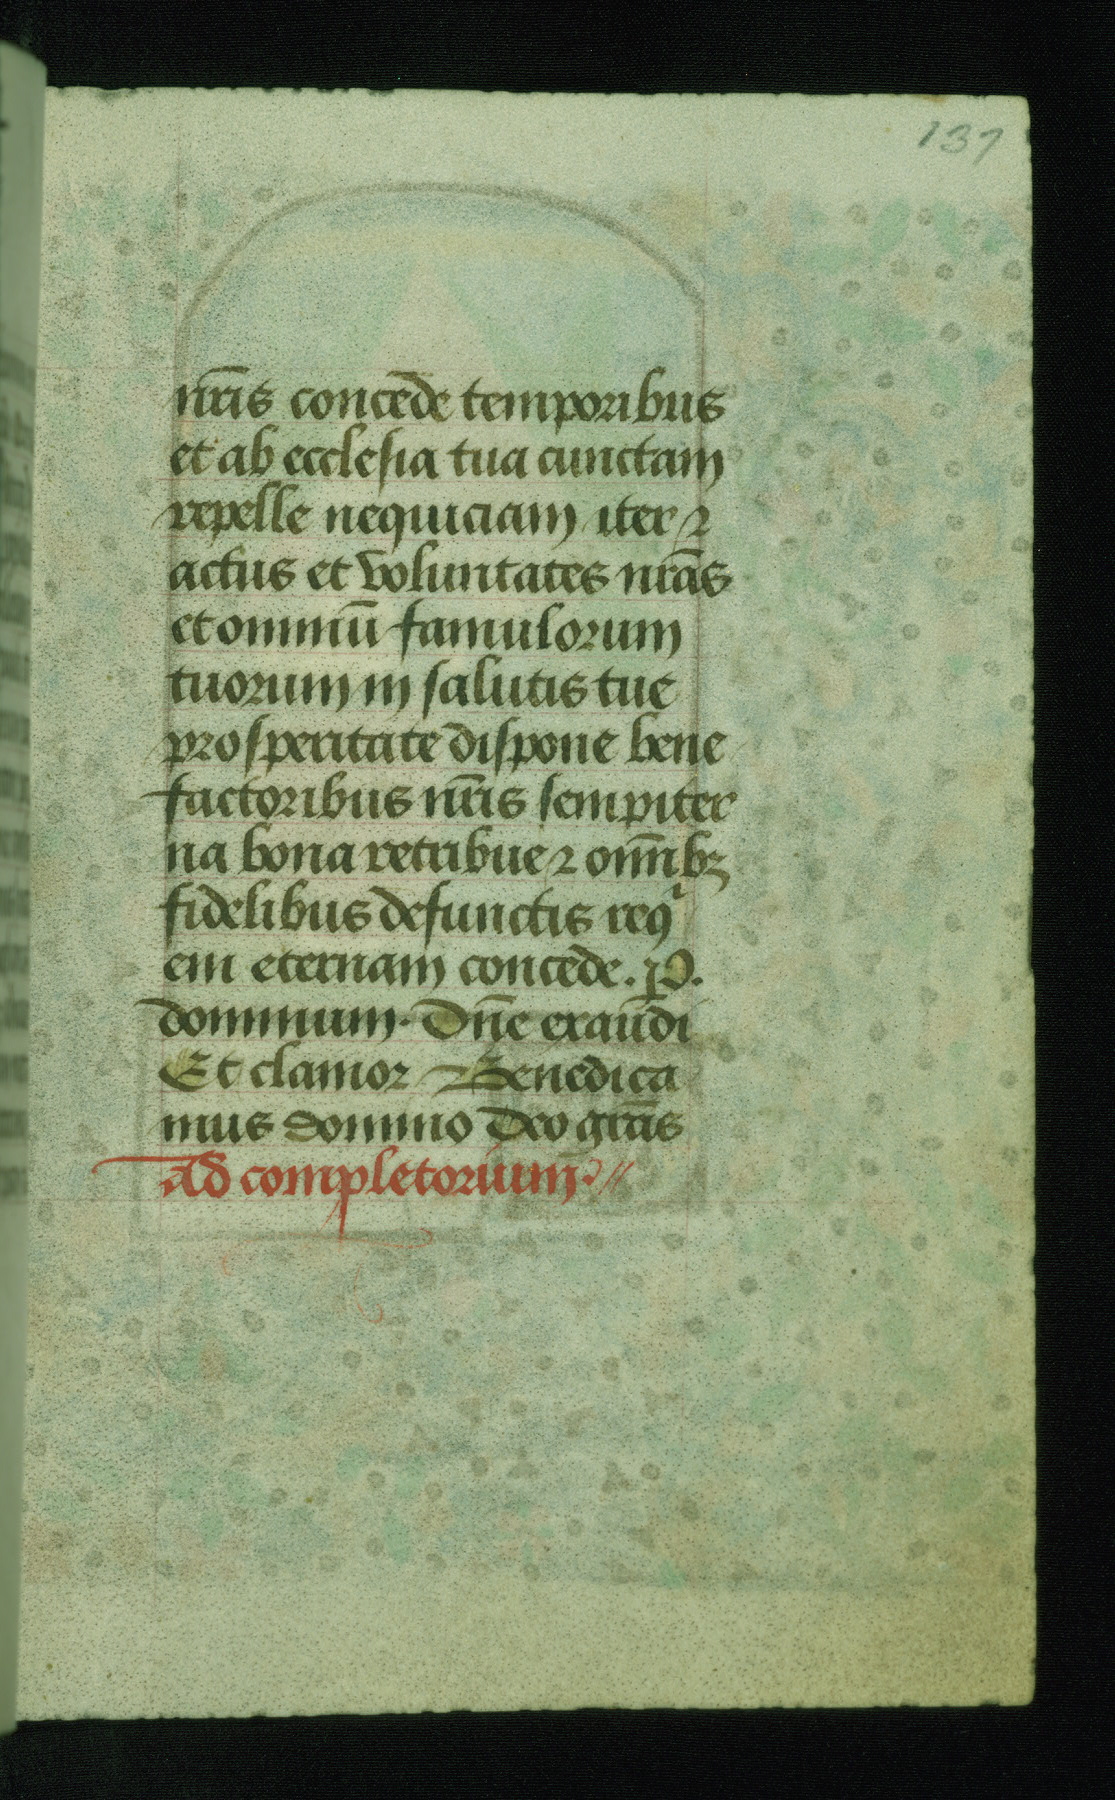 137
nr̄is concede temporibus
et ab ecclesia tua cunctam
repelle nequiciam iter ⁊
actus et voluntates nr̄as
et omniū famulorum
tuorum in salutis tue
prosperitate dispone bene
factoribus nr̄is sempiter
na bona retribue ⁊ om̄ibꝫ
fidelibus defunctis reqͥ
em eternam concede. P.
dominum. Dn̄e exaudi
Et clamor Benedica
mus domino Deo grās
ad completorium //